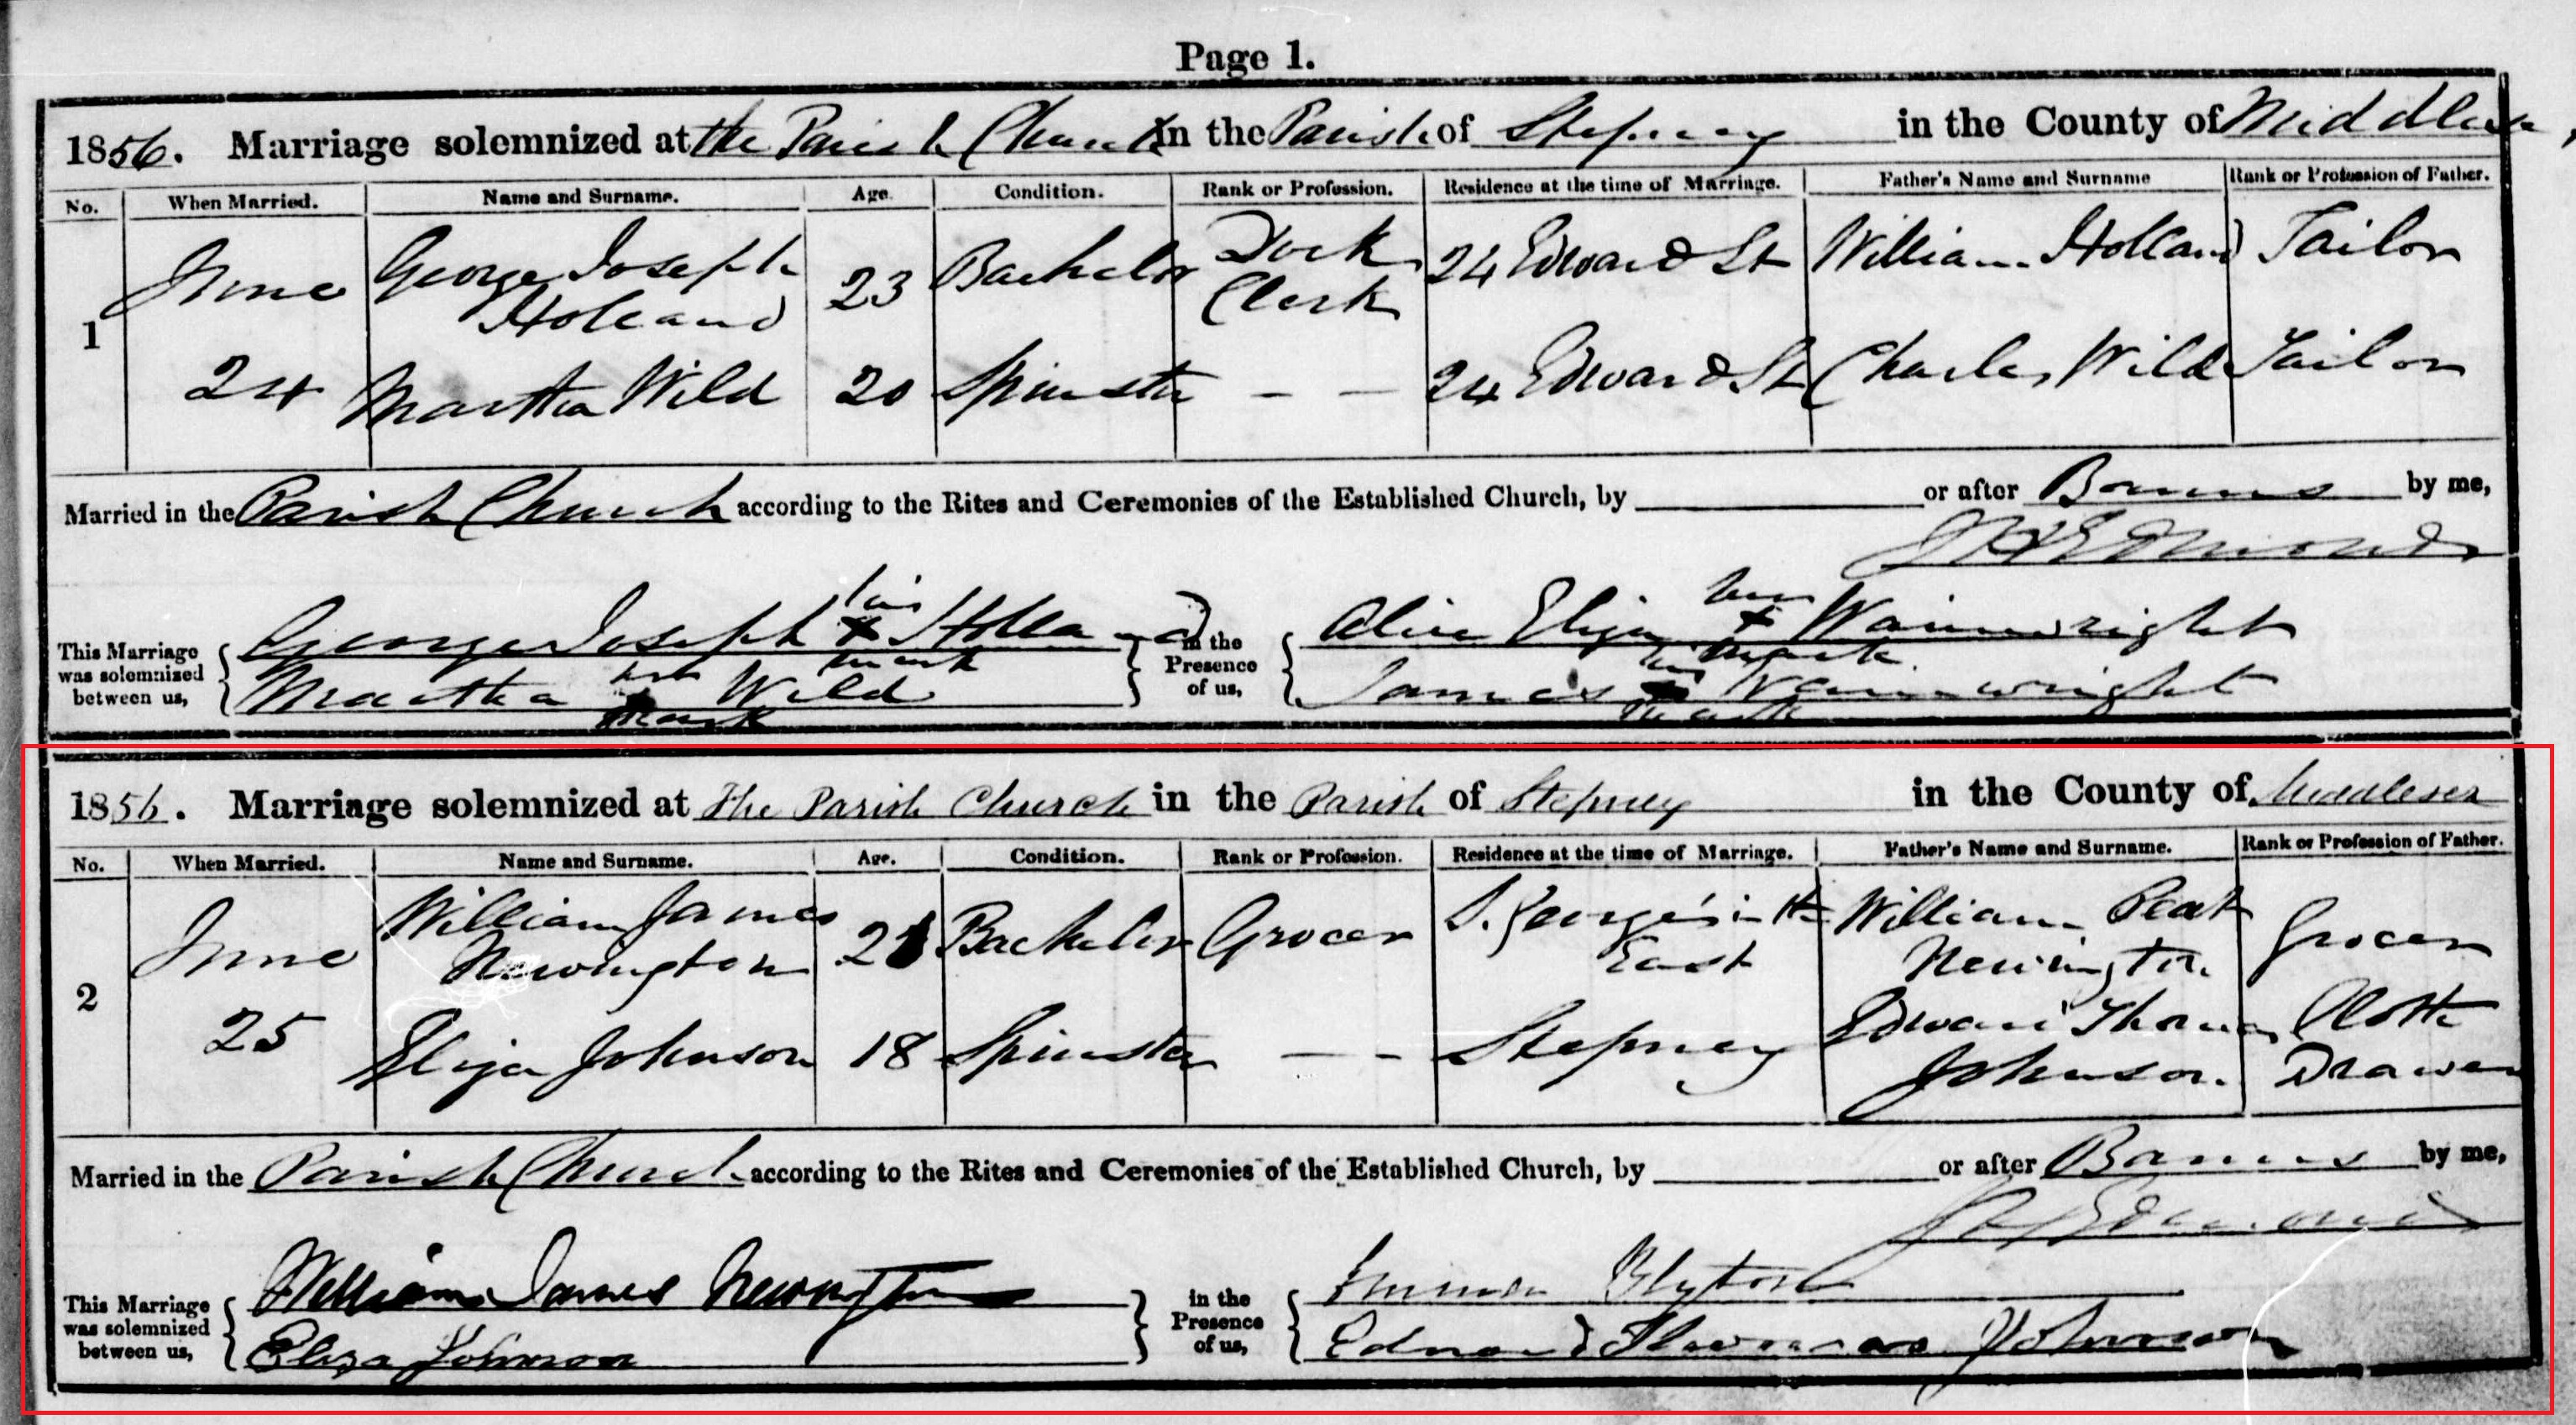 Page 1.
1856. Marriage solemnized at the Parish Church in the Parish of Stepney in the County of Middlesex
No. When Married. Name and Surname. Age. Condition. Rank or Profession. Residence at the time of Marriage. Father's Name and Surname Rank or Profession of Father.
1 June 24 George Joseph Holland 23 Bachelor Dock Clerk 24 Edward St William Holland Tailor
Martha Wild 20 Spinster - - 24 Edward St Charles Wild Tailor
Married in the Parish Church according to the Rites and Ceremonies of the Established Church, by or after Banns by me,
Edmonds
This Marriage was solemnized between us, George Joseph his X mark Holland in the Presence of us, Alice Eliza her X mark Wainwright
Martha her X mark Wild James his X mark Wainwright
1856. Marriage solemnized at The Parish Church in the Parish of Stepney in the County of Middlesex
No. When Married. Name and Surname. Age. Condition. Rank or Profession. Residence at the time of Marriage. Father's Name and Surname. Rank or Profession of Father.
2 June 25 William James Newington 21 Bachelor Grocer S. George's in the East William Peat Newington Grocer
Eliza Johnson 18 Spinster - - Stepney Edward Thomas Johnson. Cloth Drawer
Married in the Parish Church according to the Rites and Ceremonies of the Established Church, by or after Banns by me,
Edmonds
This Marriage was solemnized between us, William James Newington in the Presence of us, Emma Blyton
Eliza Johnson Edward Thomas Johnson